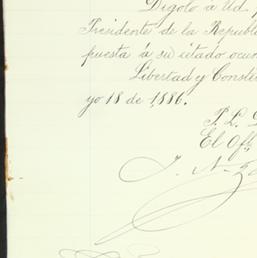 Dígolo á Ud.
Presidente de la Repúbl
puesta á su citado ocur
Libertad y Constit
yo 18 de 1886.
P. L.
El Of